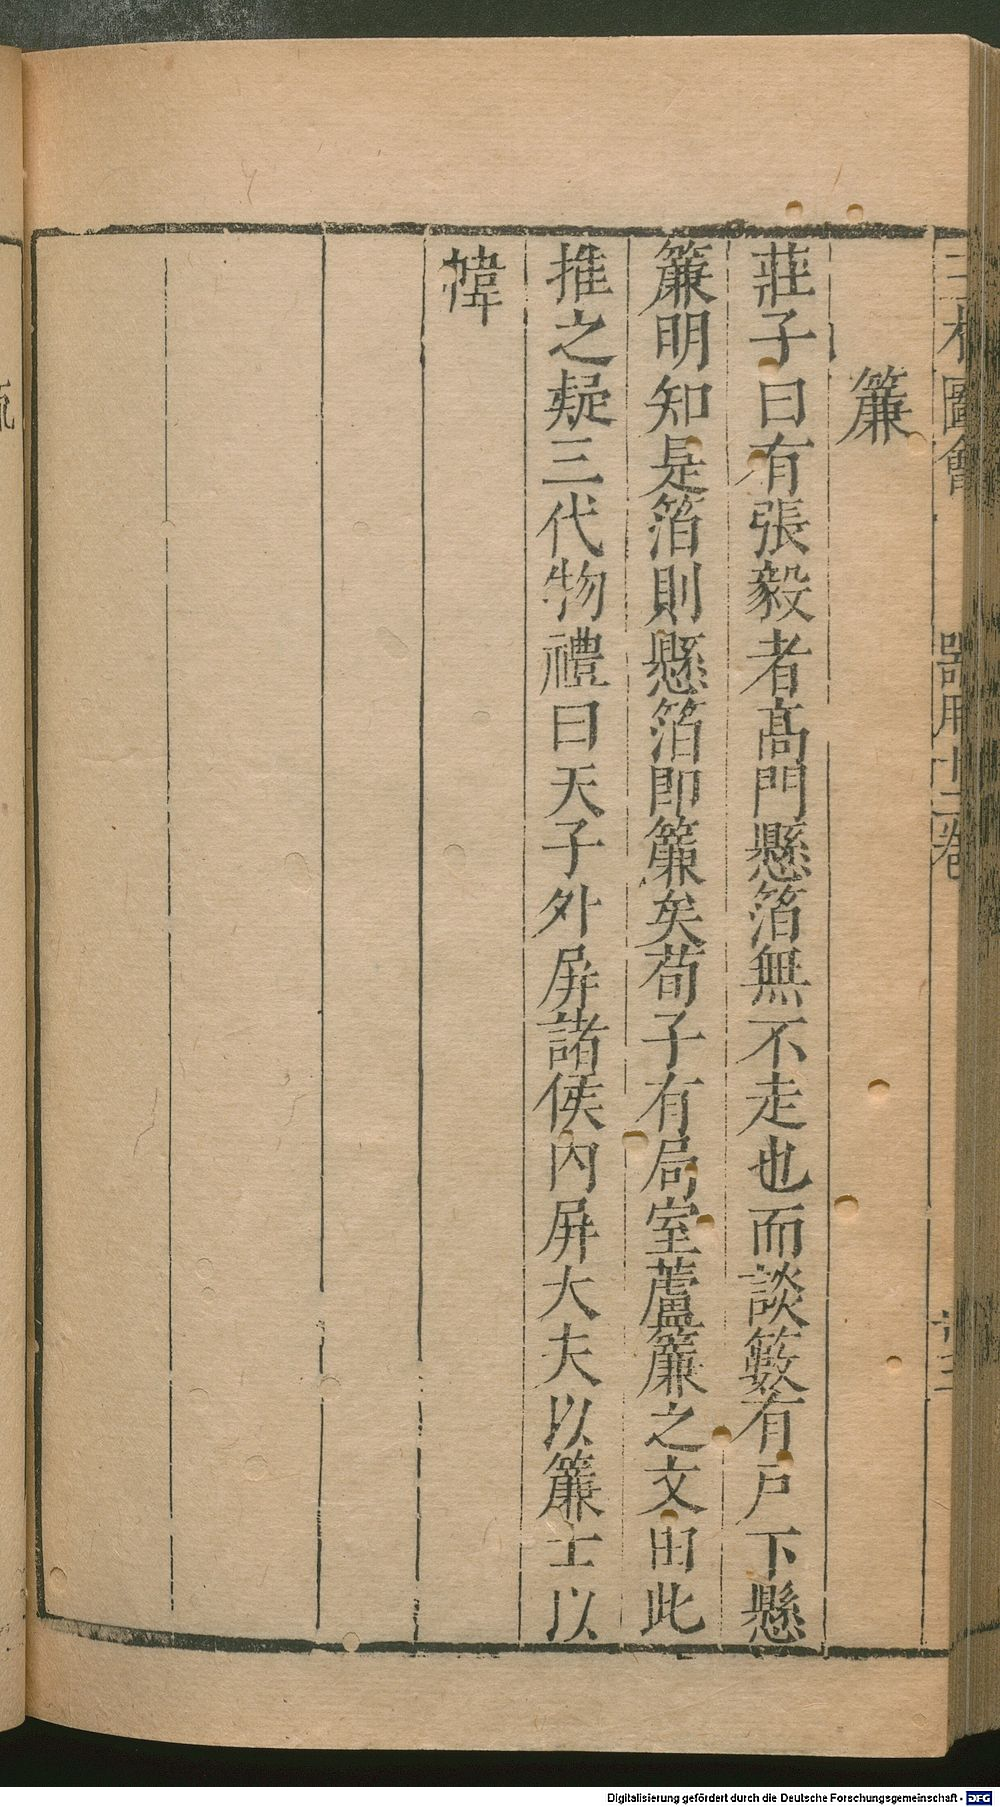 三才圖會 器用十二卷
簾
莊子曰有張毅者高門懸箔無不走也而談籔有戸下懸
簾明知是箔則懸箔即簾矣荀子有局室蘆簾之文由此
推之疑三代物禮曰天子外屏諸侯內屏大夫以簾士以
幃
Digitalisierung gefördert durch die Deutsche Forschungsgemeinschaft - DFG